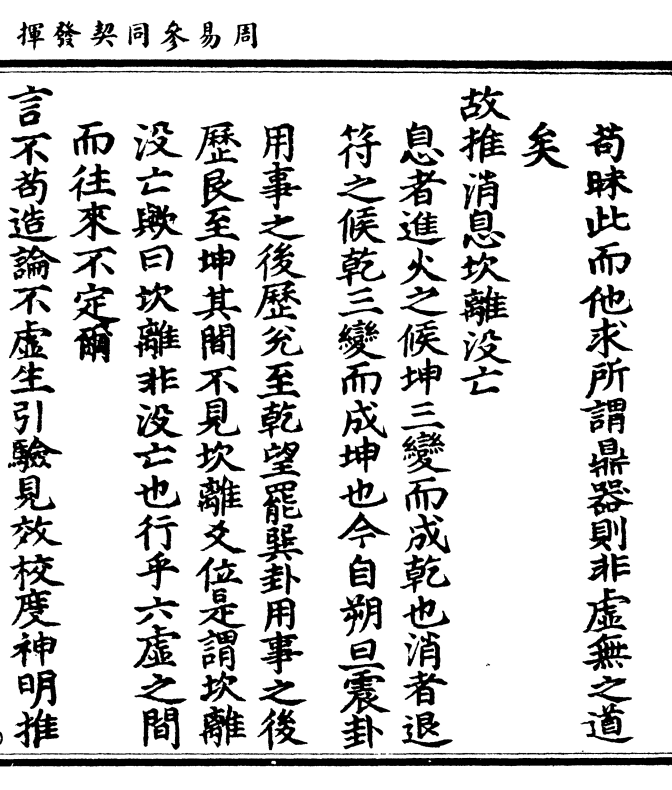 周易參同契發揮
苟昧此而他求所謂鼎器則非虛無之道
矣
故推消息坎離没亡
息者進火之候坤三變而成乾也消者退
符之候乾三變而成坤也今自朔旦震卦
用事之後歷兊至乾望罷巽卦用事之後
歷艮至坤其間不見坎離爻位是謂坎離
没亡歟曰坎離非没亡也行乎六虛之間
而往來不定爾
言不苟造論不虛生引驗見效校度神明推